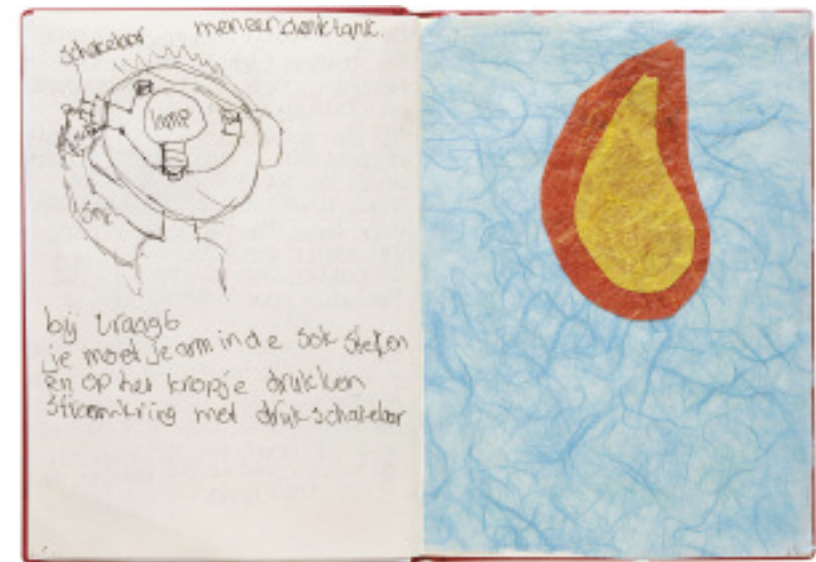 meneer denktank.
schakelaar
lamp
arm
bij vraag 6
je moet je arm in de sok steken
en op het knopje drukken
stroomkring met drukschakelaar